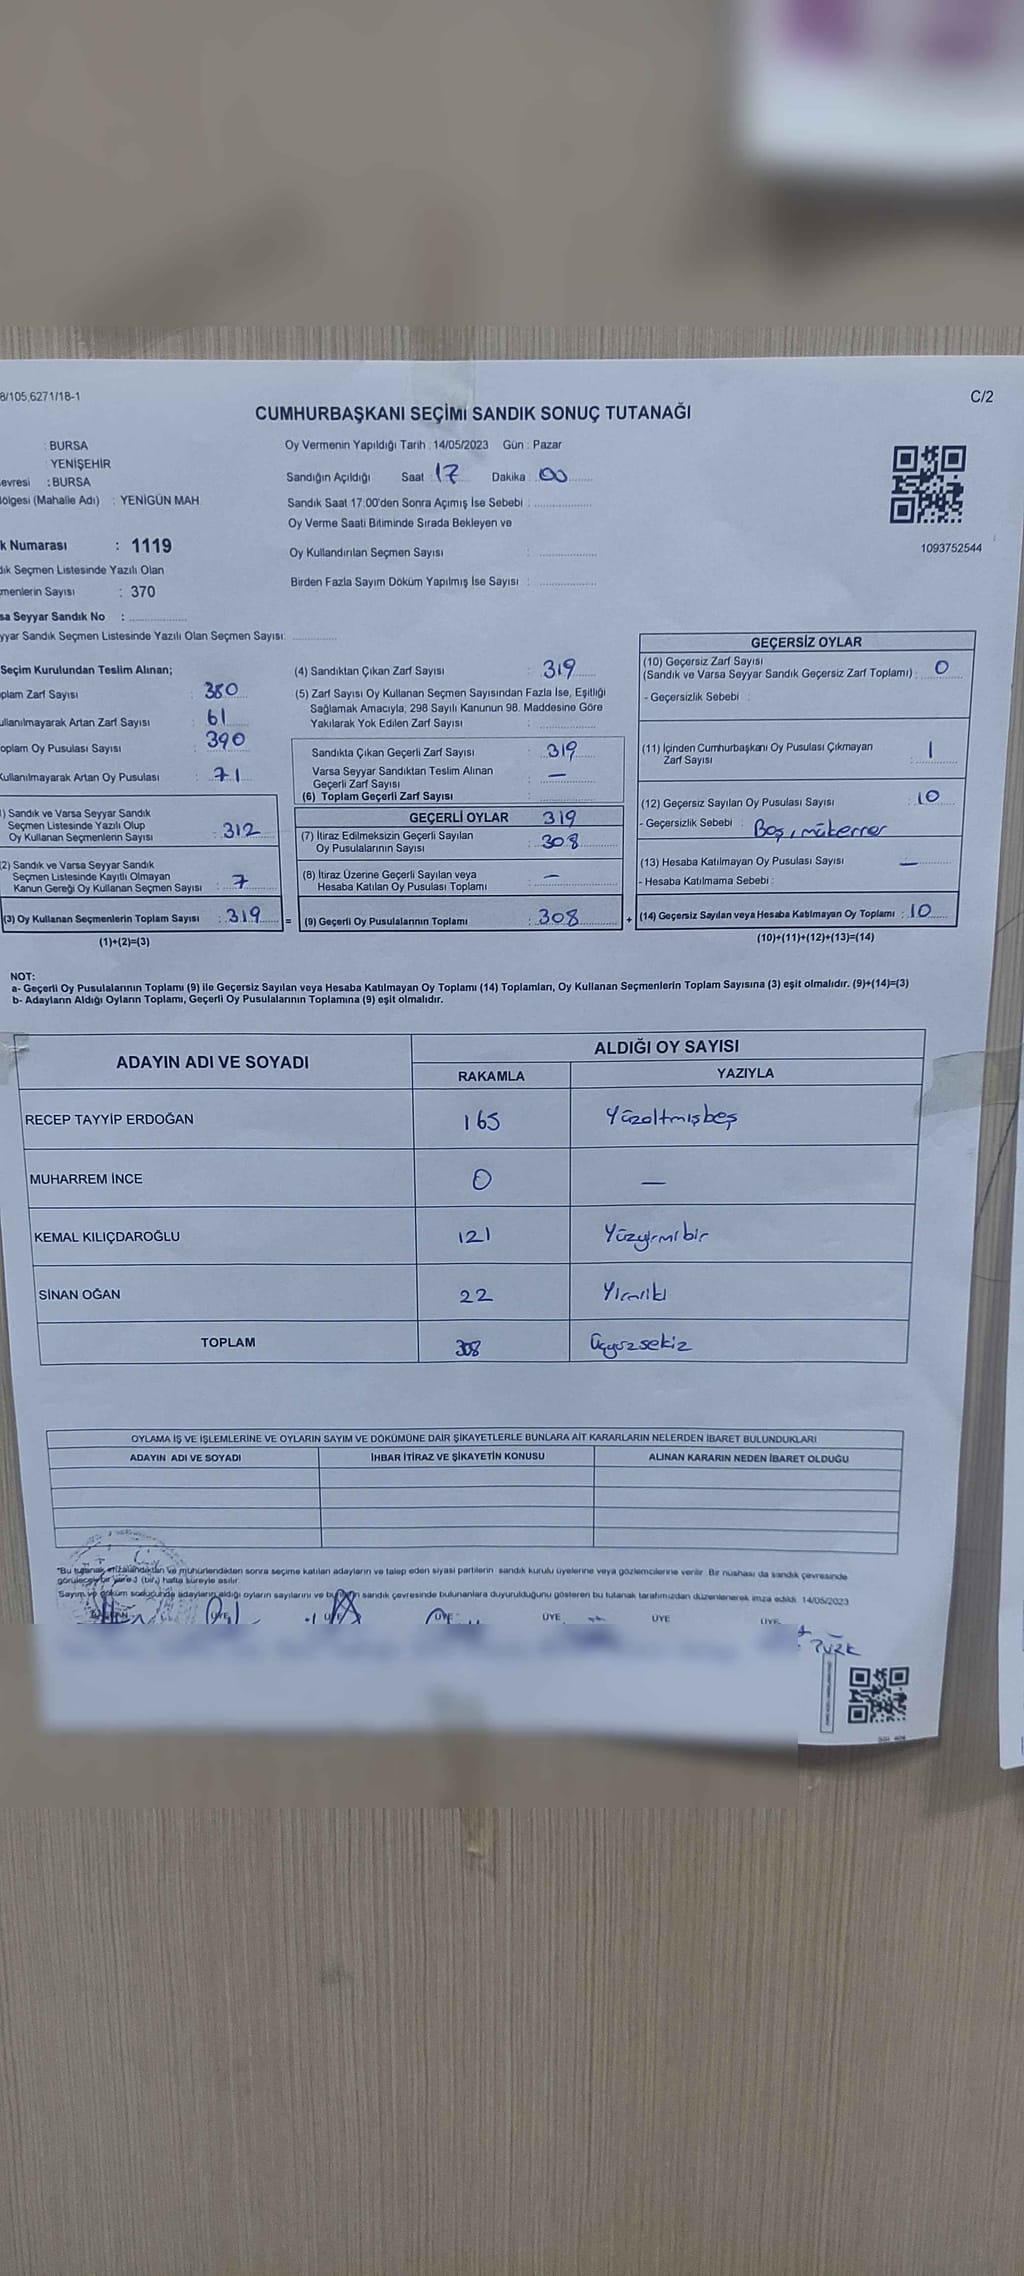 8/105,6271/18-1
C/2
CUMHURBAŞKANI SEÇİMİ SANDIK SONUÇ TUTANAĞI
: BURSA
: YENİŞEHİR
evresi : BURSA
ölgesi (Mahalle Adı) : YENİGÜN MAH.
k Numarası : 1119
dık Seçmen Listesinde Yazılı Olan
menlerin Sayısı : 370
sa Seyyar Sandık No :
yyar Sandık Seçmen Listesinde Yazılı Olan Seçmen Sayısı:
Oy Vermenin Yapıldığı Tarih : 14/05/2023 Gün : Pazar
Sandığın Açıldığı Saat : 17 Dakika : 00
Sandık Saat 17:00'den Sonra Açımış İse Sebebi :
Oy Verme Saati Bitiminde Sırada Bekleyen ve
Oy Kullandırılan Seçmen Sayısı :
Birden Fazla Sayım Döküm Yapılmış İse Sayısı :
1093752544
Seçim Kurulundan Teslim Alınan;
plam Zarf Sayısı : 380
ullanılmayarak Artan Zarf Sayısı : 61
oplam Oy Pusulası Sayısı : 390
Kullanılmayarak Artan Oy Pusulası : 71
) Sandık ve Varsa Seyyar Sandık
Seçmen Listesinde Yazılı Olup
Oy Kullanan Seçmenlerin Sayısı : 312
2) Sandık ve Varsa Seyyar Sandık
Seçmen Listesinde Kayıtlı Olmayan
Kanun Gereği Oy Kullanan Seçmen Sayısı : 7
(3) Oy Kullanan Seçmenlerin Toplam Sayısı : 319
(1)+(2)=(3)
(4) Sandıktan Çıkan Zarf Sayısı : 319
(5) Zarf Sayısı Oy Kullanan Seçmen Sayısından Fazla İse, Eşitliği
Sağlamak Amacıyla, 298 Sayılı Kanunun 98. Maddesine Göre
Yakılarak Yok Edilen Zarf Sayısı :
Sandıkta Çıkan Geçerli Zarf Sayısı : 319
Varsa Seyyar Sandıktan Teslim Alınan
Geçerli Zarf Sayısı : —
(6) Toplam Geçerli Zarf Sayısı :
GEÇERLİ OYLAR 319
(7) İtiraz Edilmeksizin Geçerli Sayılan
Oy Pusulalarının Sayısı : 308
(8) İtiraz Üzerine Geçerli Sayılan veya
Hesaba Katılan Oy Pusulası Toplamı : —
= (9) Geçerli Oy Pusulalarının Toplamı : 308
GEÇERSİZ OYLAR
(10) Geçersiz Zarf Sayısı
(Sandık ve Varsa Seyyar Sandık Geçersiz Zarf Toplamı) : 0
- Geçersizlik Sebebi :
(11) İçinden Cumhurbaşkanı Oy Pusulası Çıkmayan
Zarf Sayısı : 1
(12) Geçersiz Sayılan Oy Pusulası Sayısı : 10
- Geçersizlik Sebebi : Boş, mükerrer
(13) Hesaba Katılmayan Oy Pusulası Sayısı : —
- Hesaba Katılmama Sebebi :
+ (14) Geçersiz Sayılan veya Hesaba Katılmayan Oy Toplamı : 10
(10)+(11)+(12)+(13)=(14)
NOT:
a- Geçerli Oy Pusulalarının Toplamı (9) ile Geçersiz Sayılan veya Hesaba Katılmayan Oy Toplamı (14) Toplamları, Oy Kullanan Seçmenlerin Toplam Sayısına (3) eşit olmalıdır. (9)+(14)=(3)
b- Adayların Aldığı Oyların Toplamı, Geçerli Oy Pusulalarının Toplamına (9) eşit olmalıdır.
ADAYIN ADI VE SOYADI ALDIĞI OY SAYISI
RAKAMLA YAZIYLA
RECEP TAYYİP ERDOĞAN 165 Yüzaltmışbeş
MUHARREM İNCE 0 —
KEMAL KILIÇDAROĞLU 121 Yüzyirmibir
SİNAN OĞAN 22
TOPLAM 308 Üçyüzsekiz
OYLAMA İŞ VE İŞLEMLERİNE VE OYLARIN SAYIM VE DÖKÜMÜNE DAİR ŞİKAYETLERLE BUNLARA AİT KARARLARIN NELERDEN İBARET BULUNDUKLARI
ADAYIN ADI VE SOYADI İHBAR İTİRAZ VE ŞİKAYETİN KONUSU ALINAN KARARIN NEDEN İBARET OLDUĞU
"Bu tutanak imzalandıktan ve mühürlendikten sonra seçime katılan adayların ve talep eden siyasi partilerin sandık kurulu üyelerine veya gözlemcilerine verilir. Bir nüshası da sandık çevresinde
görülecek bir yere 1 (bir) hafta süreyle asılır.
Sayım ve döküm sonucunda adayların aldığı oyların sayılarını ve bunların sandık çevresinde bulunanlara duyurulduğunu gösteren bu tutanak tarafımızdan düzenlenerek imza edildi. 14/05/2023
ÜYE ÜYE ÜYE ÜYE ÜYE ÜYE